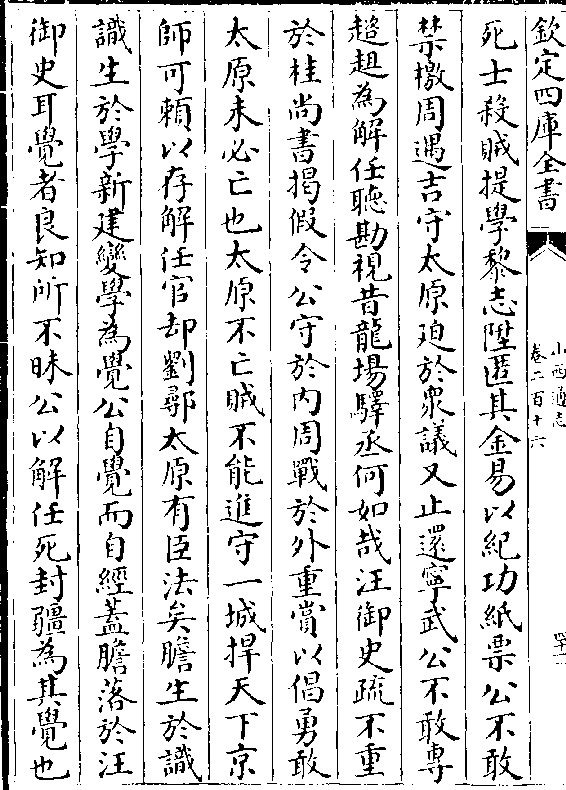 欽定四庫全書
山西通志
卷二百十六
死士殺賊提學黎志陞匿其金易以紀功紙票公不敢
禁檄周遇吉守太原廹於衆議又止還寧武公不敢專
趦趄為解任聽勘視昔龍場驛丞何如哉汪御史疏不重
於桂尚書揭假令公守於内周戰於外重賞以倡勇敢
太原未必亡也太原不亡賊不能進守一城捍天下京
師可賴以存解任官却劉鄩太原有臣法矣膽生於識
識生於學新建變學為覺公自覺而自經蓋膽落於汪
御史耳覺者良知所不昧公以解任死封疆為其覺也